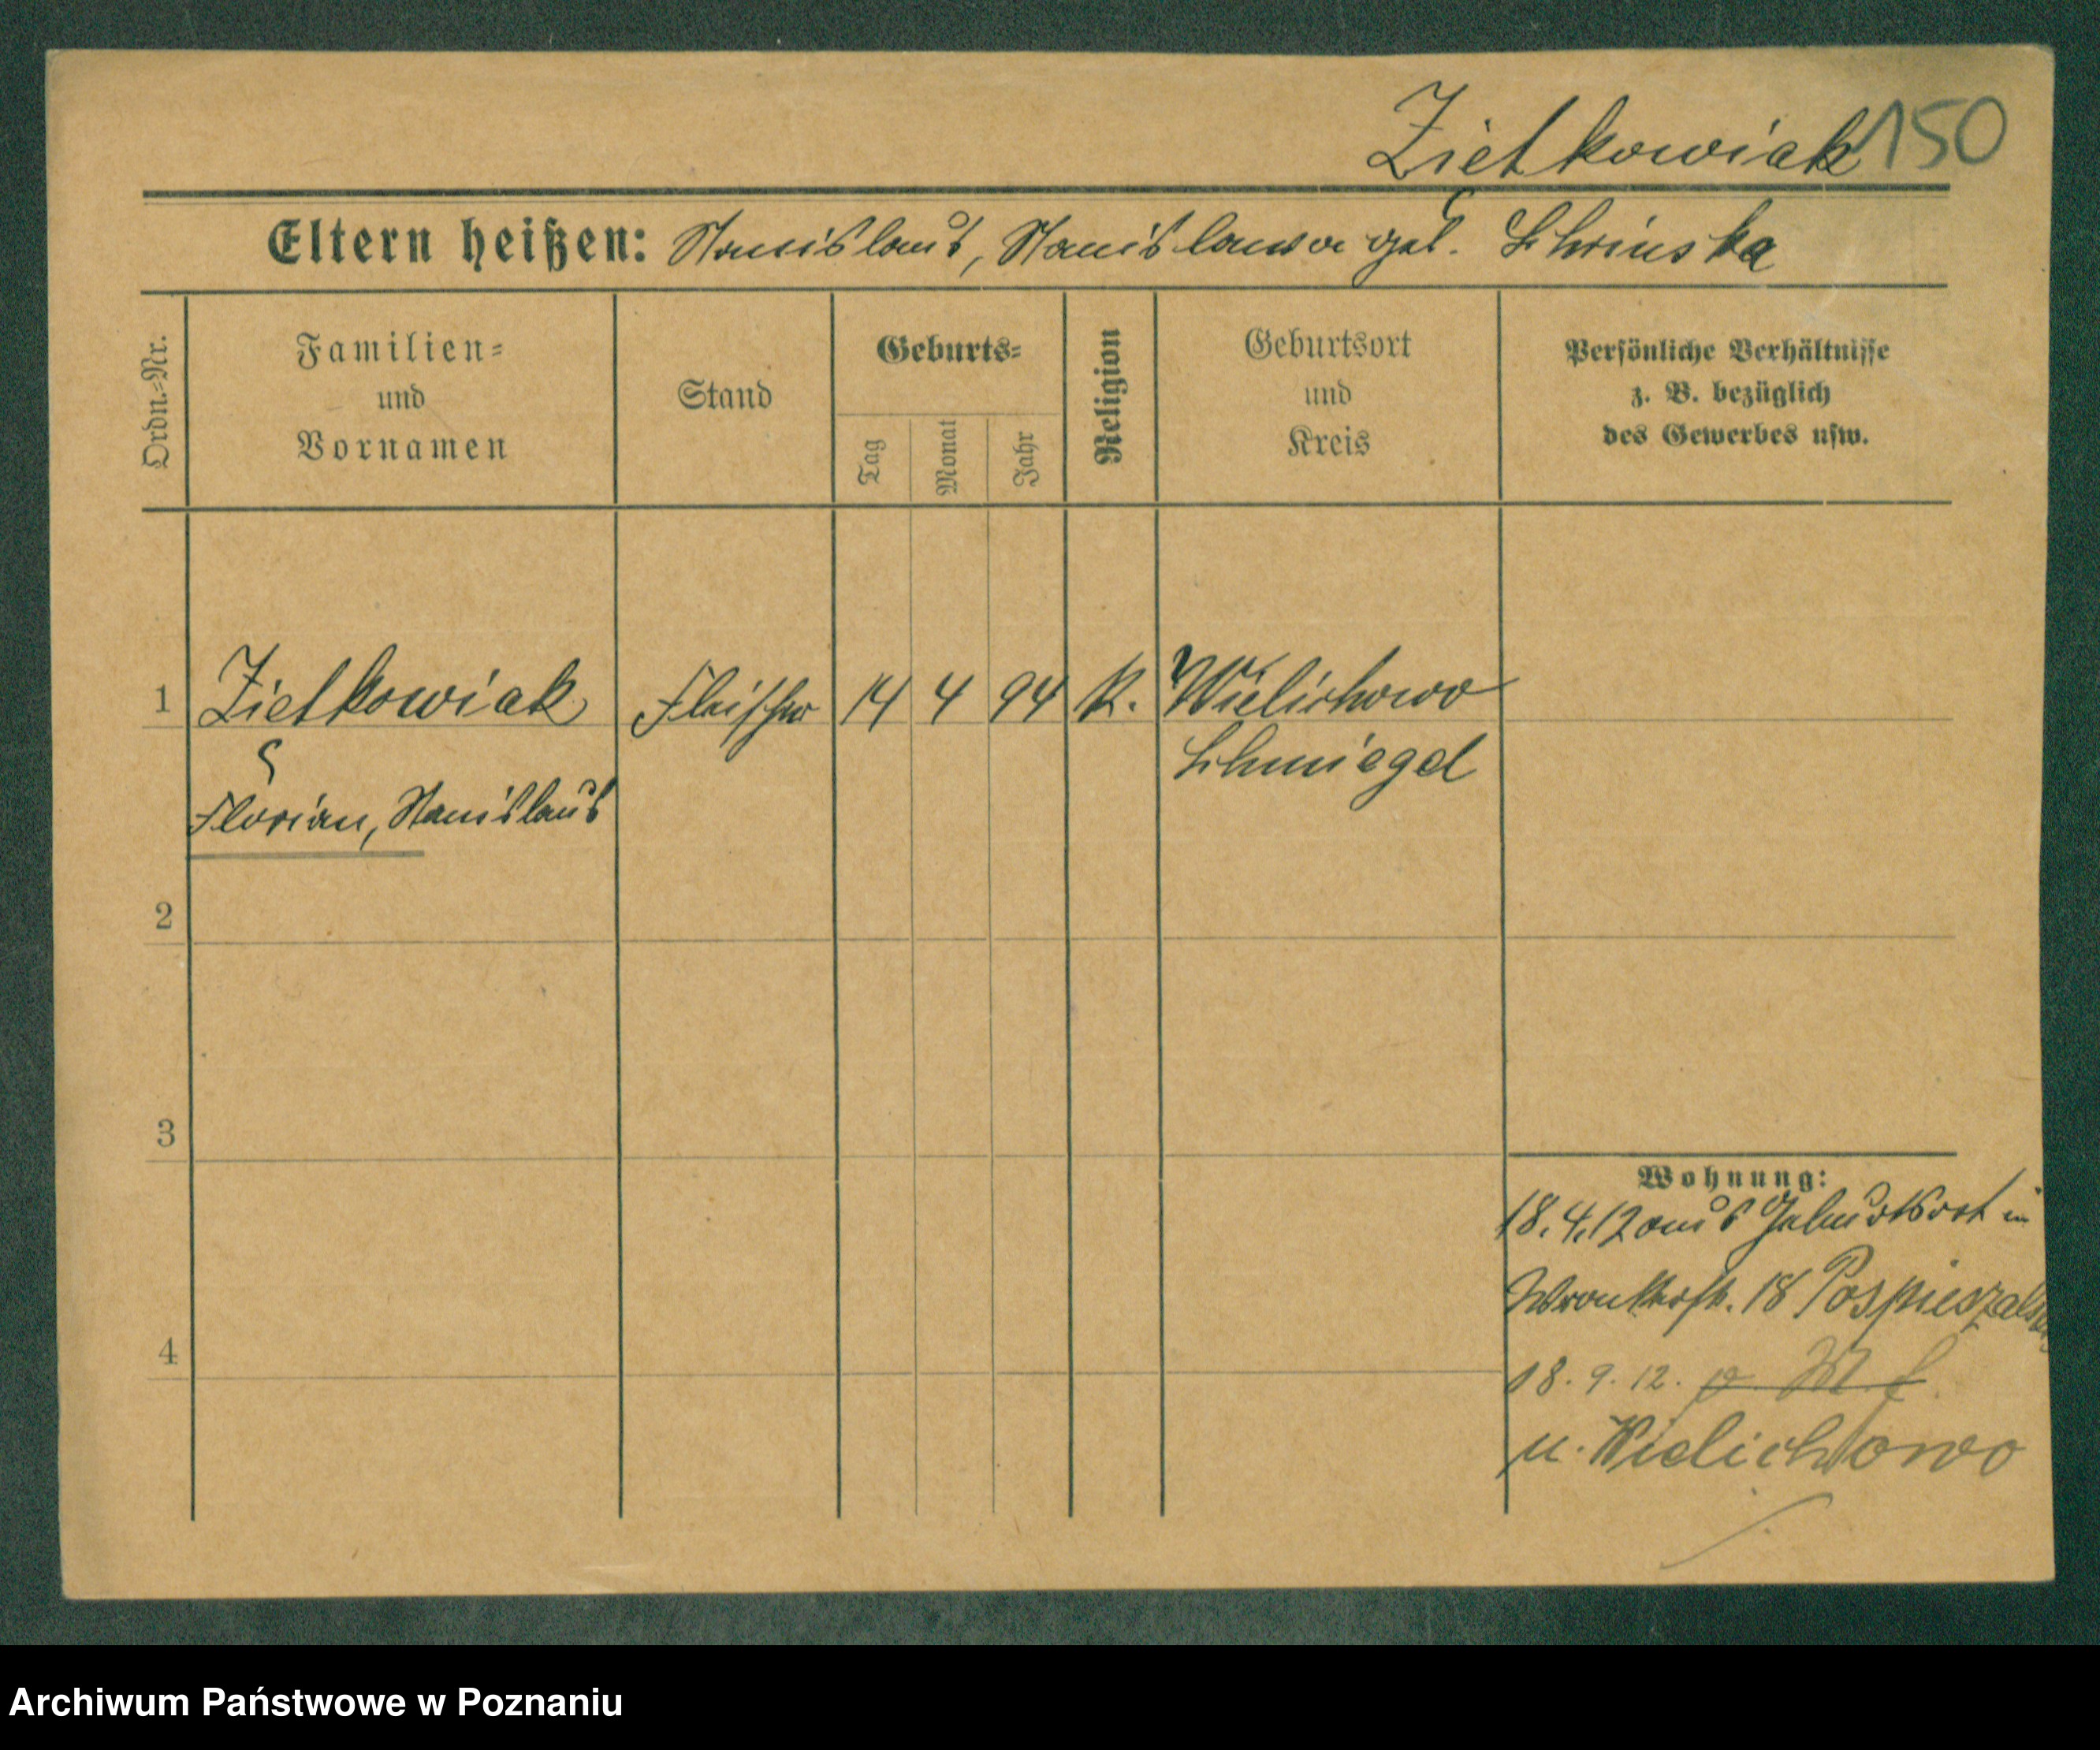 Zietkowiak 150
Eltern heißen: Stanislaus, Stanislawa geb.
Ordn.=Nr.
Familien=
und
Vornamen
Stand
Geburts=
Tag
Monat
Jahr
Religion
Geburtsort
und
Kreis
Persönliche Verhältnisse
z. B. bezüglich
des Gewerbes usw.
1 Zietkowiak Fleischer 14 4 94 K. Wielichowo
Schmiegel
Florian, Stanislaus
2
3
4
Wohnung:
18.4.12 aus Geburtsort in
Wronkerstr. 18 Pospieszalski
18.9.12.
n. Wielichowo
Archiwum Państwowe w Poznaniu